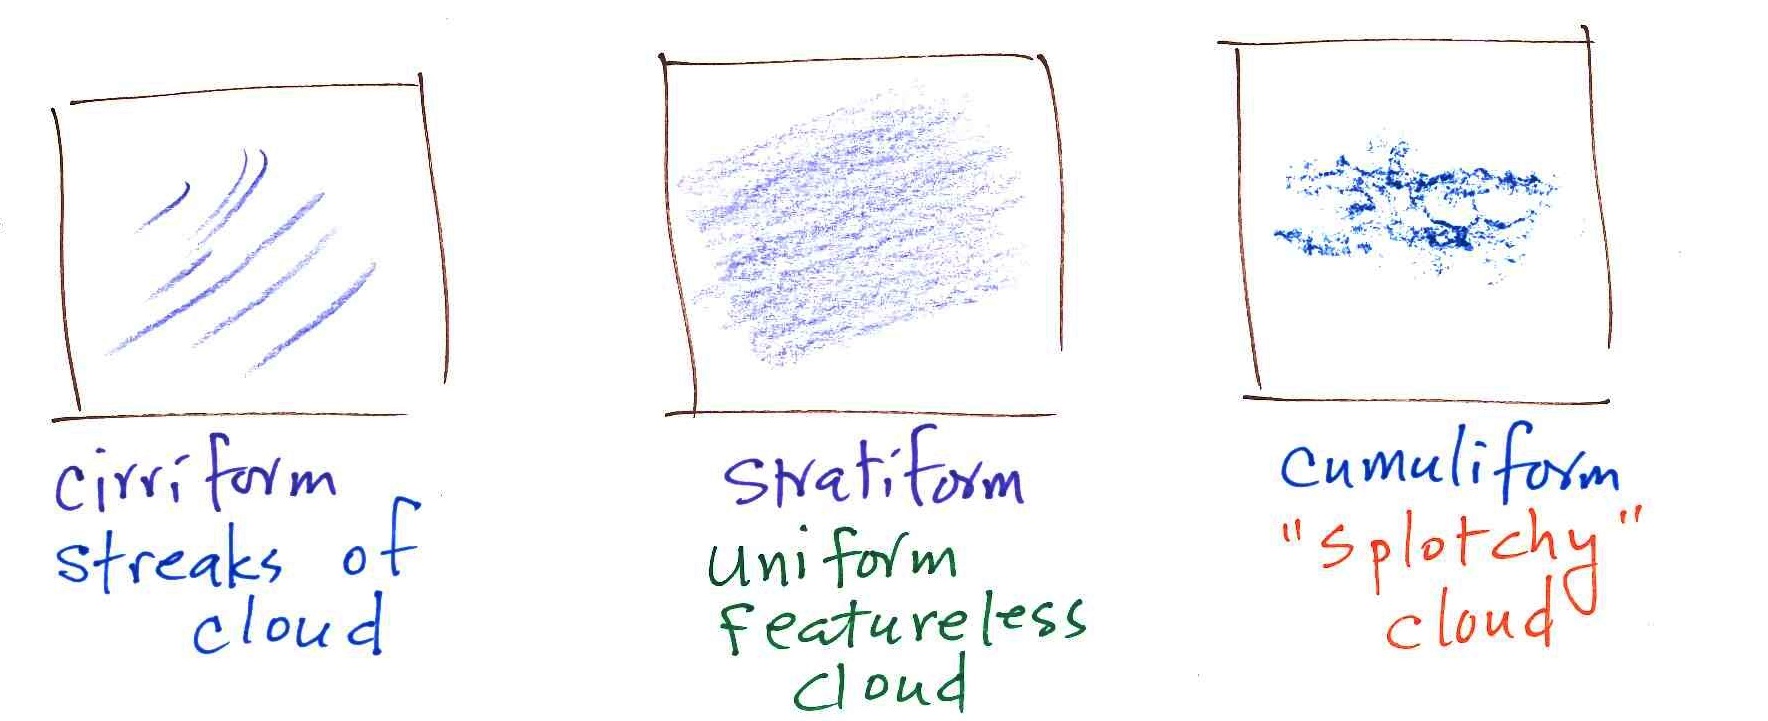 cirriform
streaks of
cloud
stratiform
uniform
featureless
cloud
cumuliform
"splotchy"
cloud